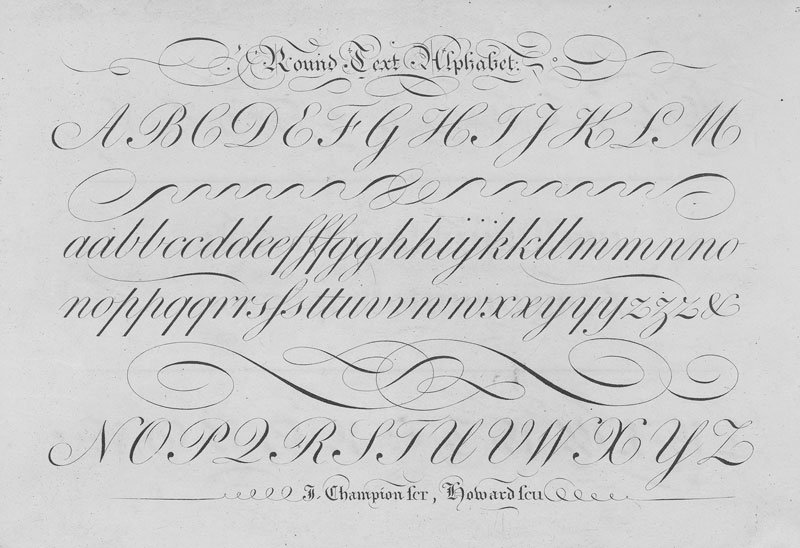 Round Text Alphabet.
A B C D E F G H I J K L M
aabbccddeefffgghhiijkkllmmnno
noppqqrrsſstttuvvwwxxyyyzzz&
N O P Q R S T U V W X Y Z
J. Champion ſcr, Howard ſcu